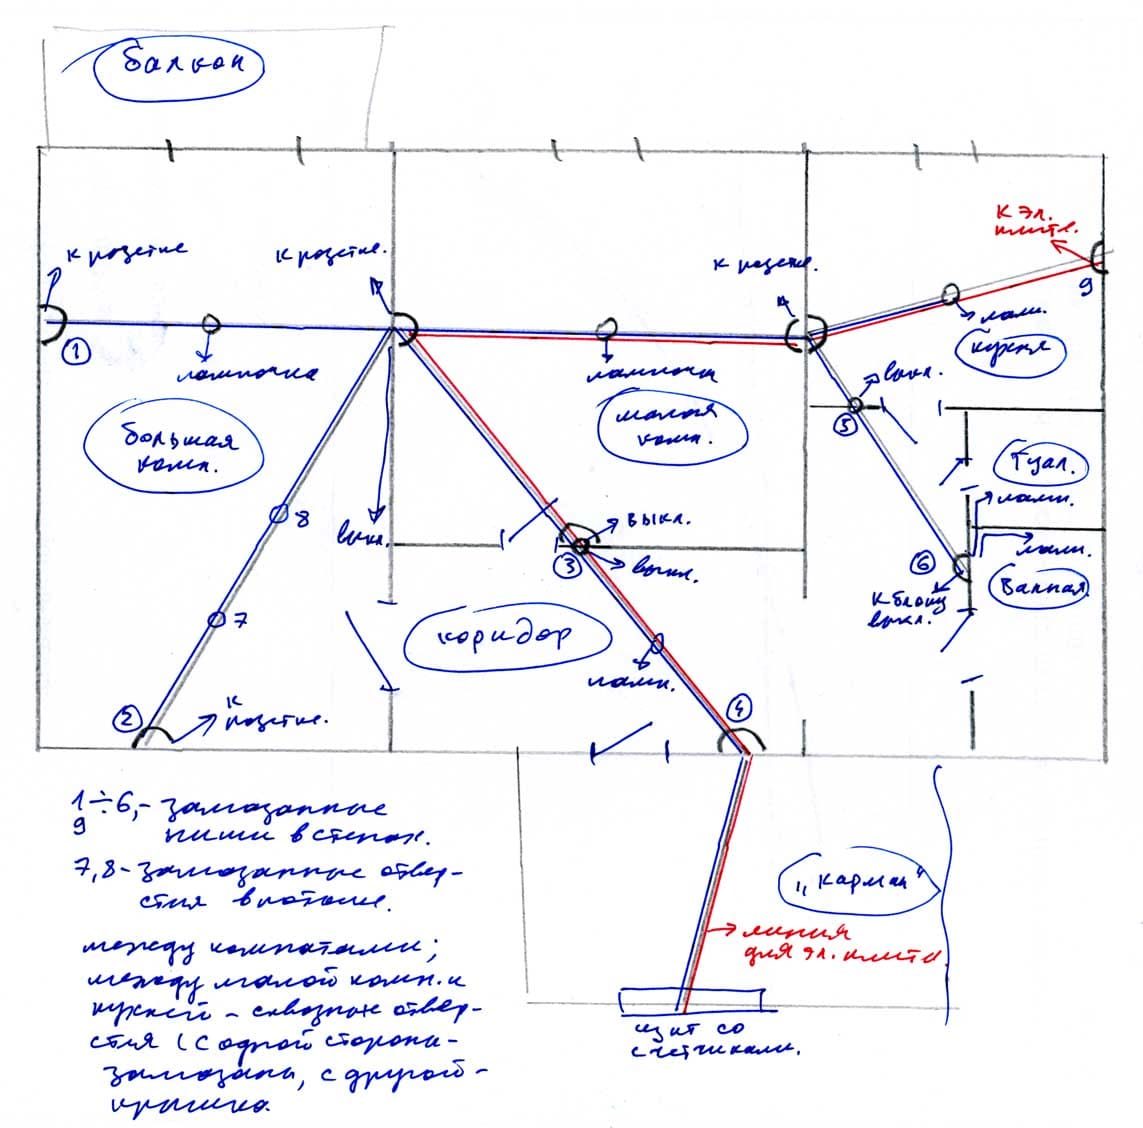 балкон
к розетке
к розетке.
к розетке.
к эл.
плите.
9
1
лампочка
лампочка
ламп.
кухня
выкл.
5
большая
комн.
малая
комн.
Туал.
ламп.
8
выкл.
выкл.
3
выкл.
6
ламп.
Ванная
к блоку
выкл.
7
коридор
ламп.
2
к
розетке.
4
1÷6,- замазанные
9 ниши в стенах.
7,8- замазанные отвер-
стия в потолке.
между комнатами;
между малой комн. и
кухней - сквозные отвер-
стия (с одной стороны-
замазаны, с другой-
крышка.
„Карман"
линия
для эл. плиты.
щит со
счетчиками.